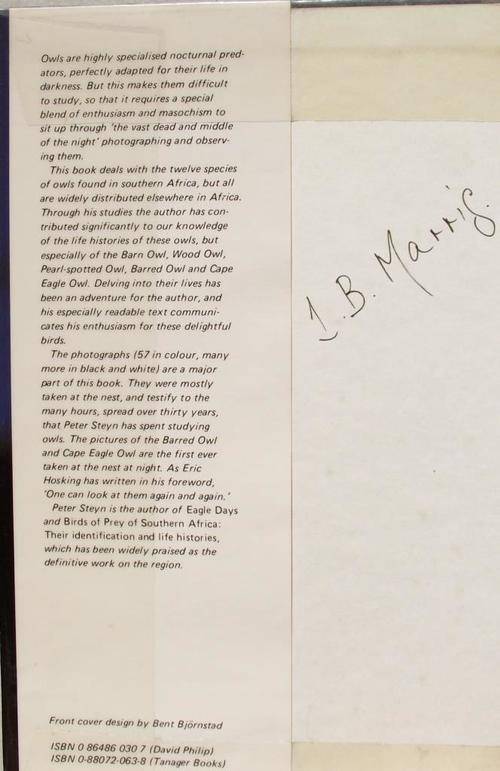 Owls are highly specialised nocturnal pred-
ators, perfectly adapted for their life in
darkness. But this makes them difficult
to study, so that it requires a special
blend of enthusiasm and masochism to
sit up through 'the vast dead and middle
of the night' photographing and observ-
ing them.
This book deals with the twelve species
of owls found in southern Africa, but all
are widely distributed elsewhere in Africa.
Through his studies the author has con-
tributed significantly to our knowledge
of the life histories of these owls, but
especially of the Barn Owl, Wood Owl,
Pearl-spotted Owl, Barred Owl and Cape
Eagle Owl. Delving into their lives has
been an adventure for the author, and
his especially readable text communi-
cates his enthusiasm for these delightful
birds.
The photographs (57 in colour, many
more in black and white) are a major
part of this book. They were mostly
taken at the nest, and testify to the
many hours, spread over thirty years,
that Peter Steyn has spent studying
owls. The pictures of the Barred Owl
and Cape Eagle Owl are the first ever
taken at the nest at night. As Eric
Hosking has written in his foreword,
'One can look at them again and again.'
Peter Steyn is the author of Eagle Days
and Birds of Prey of Southern Africa:
Their identification and life histories,
which has been widely praised as the
definitive work on the region.
Front cover design by Bent Björnstad
ISBN 0 86486 030 7 (David Philip)
ISBN 0-88072-063-8 (Tanager Books)
I. B. Marris.